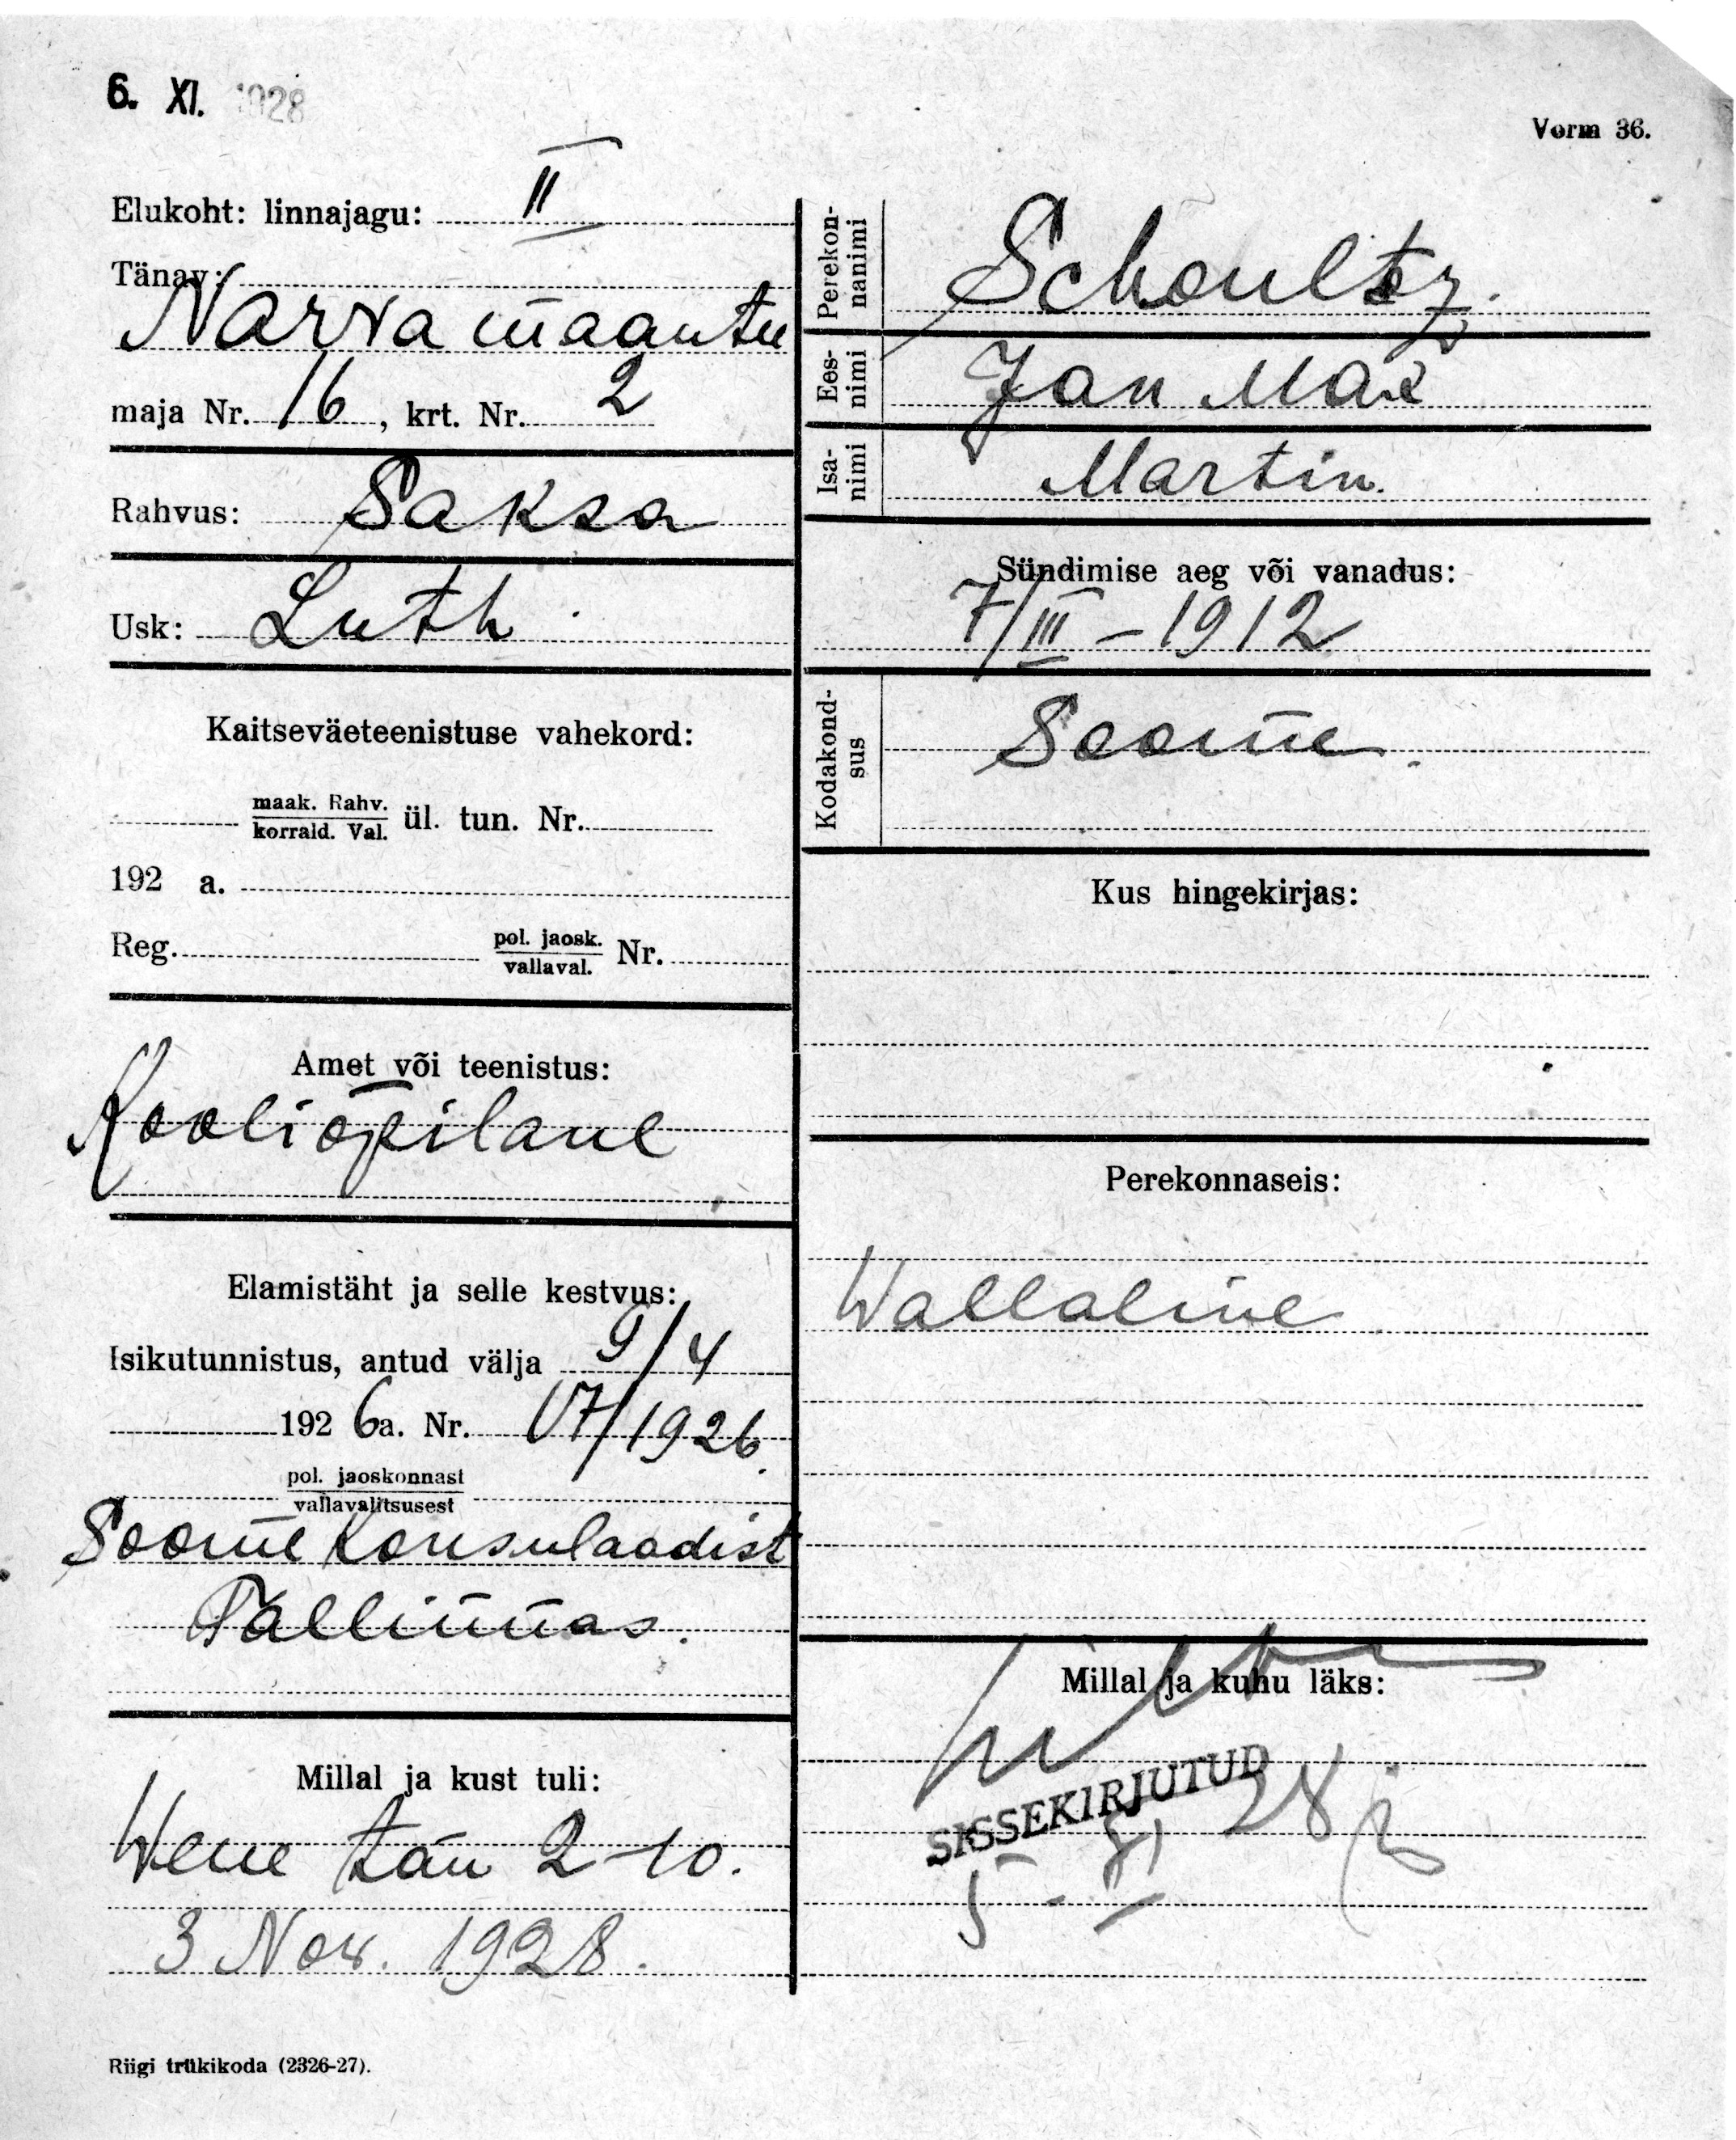 6. XI. 1928
Vorm 36.
Elukoht: linnajagu: II
Tänav:
Narva maantee
maja Nr. 16, krt. Nr. 2
Rahvus: Saksa
Usk: Luth.
Kaitseväeteenistuse vahekord:
maak. Rahv.
korrald. Val. ül. tun. Nr.
192 a.
Reg. pol. jaosk.
vallaval. Nr.
Amet või teenistus:
Kooliõpilane
Elamistäht ja selle kestvus:
Isikutunnistus, antud välja 9/4
1926a. Nr. 17/1926.
pol. jaoskonnast
vallavalitsusest
Soome Konsulaadist
Tallinnas.
Millal ja kust tuli:
Wene tän 2-10.
3 Nov. 1928.
Riigi trükikoda (2326-27).
Perekon-
nanimi
Schoultz.
Ees-
nimi
Jan Max
Isa-
nimi
Martin.
Sündimise aeg või vanadus:
7/III - 1912
Kodakond-
sus
Soome.
Kus hingekirjas:
Perekonnaseis:
Wallaline
Millal ja kuhu läks:
SISSEKIRJUTUD